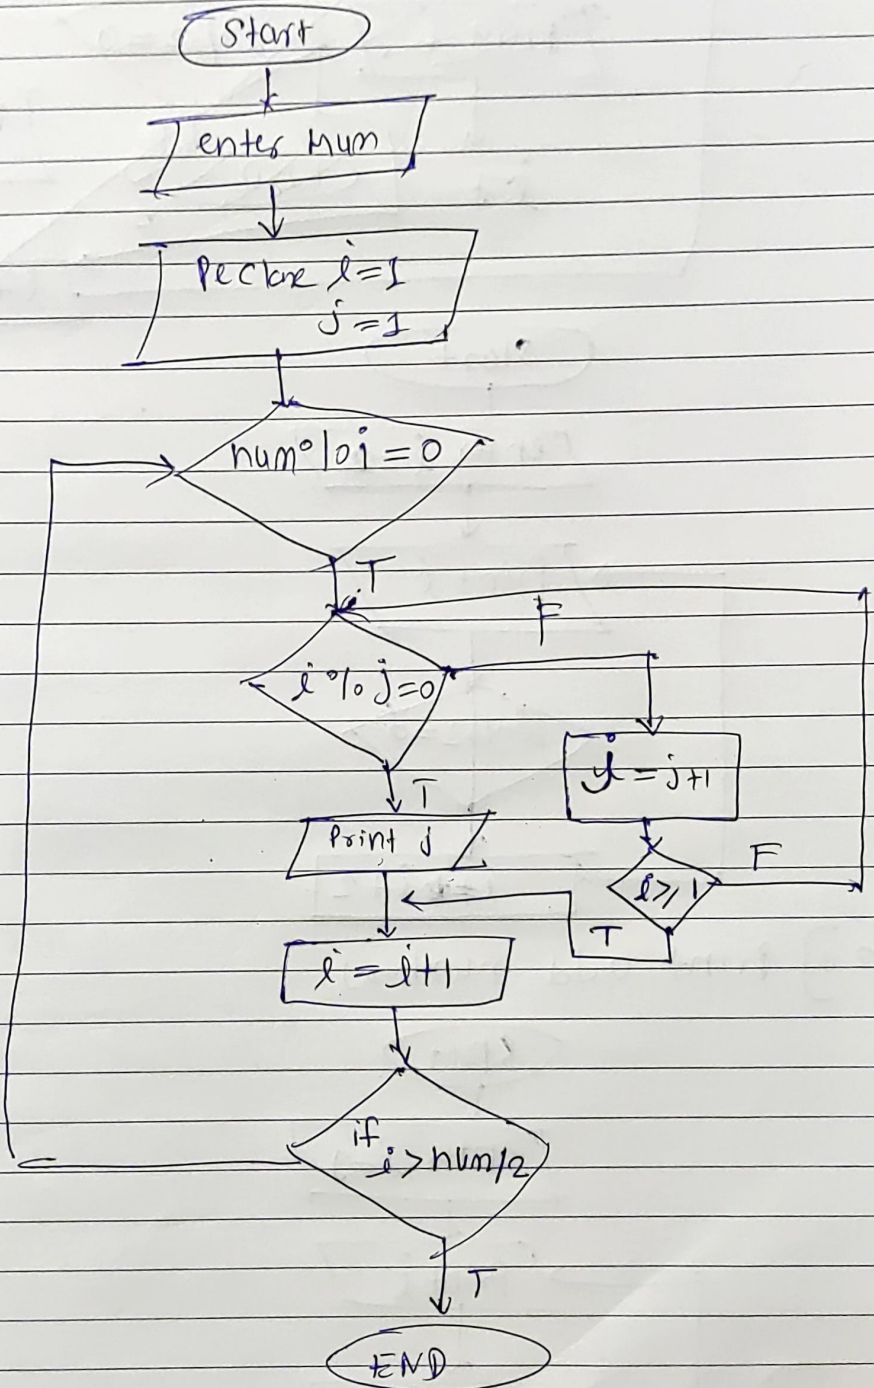 Start
enter num
Declare i=1
j=1
num%i=0
T
F
i%j=0
j=j+1
T
Print j
F
i>1
T
i=i+1
if
i>num/2
T
END